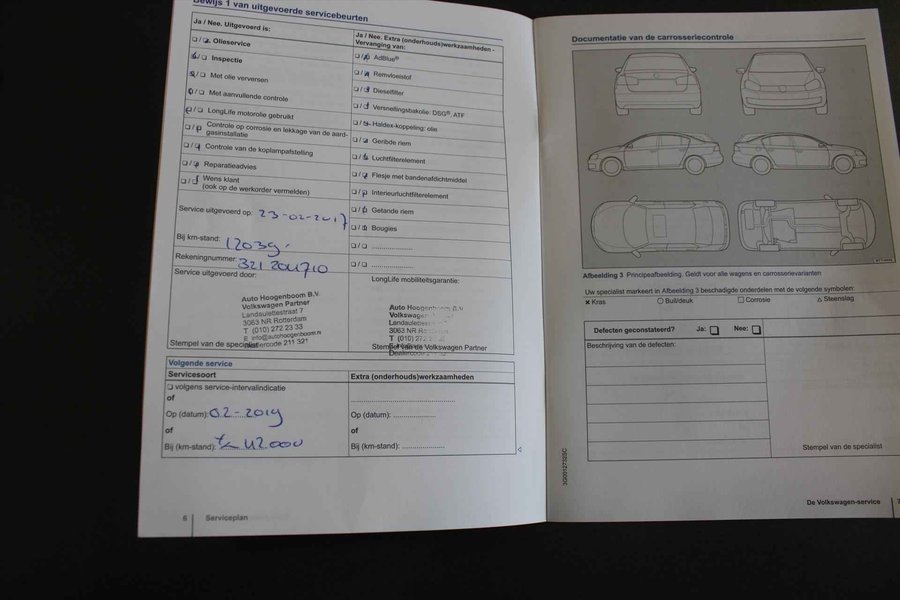 Bewijs 1 van uitgevoerde servicebeurten
Ja / Nee. Uitgevoerd is:
Olieservice
Inspectie
Met olie verversen
Met aanvullende controle
LongLife motorolie gebruikt
Controle op corrosie en lekkage van de aard-
gasinstallatie
Controle van de koplampafstelling
Reparatieadvies
Wens klant
(ook op de werkorder vermelden)
Service uitgevoerd op: 23-02-2017
Bij km-stand: 12039,
Rekeningnummer: 321204710
Service uitgevoerd door:
Auto Hoogenboom B.V.
Volkswagen Partner
Landaulettestraat 7
3063 NR Rotterdam
T (010) 272 23 33
E info@autohoogenboom.nl
Dealercode 211 321
Stempel van de specialist
Ja / Nee. Extra (onderhouds)werkzaamheden -
Vervanging van:
AdBlue®
Remvloeistof
Dieselfilter
Versnellingsbakolie: DSG®, ATF
Haldex-koppeling: olie
Geribde riem
Luchtfilterelement
Flesje met bandenafdichtmiddel
Interieurluchtfilterelement
Getande riem
Bougies
LongLife mobiliteitsgarantie:
Auto Hoogenboom B.V.
Volkswagen
Landaulettestraat
3063 NR Rotterdam
T (010) 272
Stempel van de Volkswagen Partner
Volgende service
Servicesoort
volgens service-intervalindicatie
of
Op (datum): 02-2019
of
Bij (km-stand): 42000
Extra (onderhouds)werkzaamheden
Op (datum):
of
Bij (km-stand):
6 Serviceplan
Documentatie van de carrosseriecontrole
Afbeelding 3 Principeafbeelding. Geldt voor alle wagens en carrosserievarianten
Uw specialist markeert in Afbeelding 3 beschadigde onderdelen met de volgende symbolen:
× Kras ○ Buil/deuk □ Corrosie △ Steenslag
Defecten geconstateerd? Ja: □ Nee: □
Beschrijving van de defecten:
Stempel van de specialist
De Volkswagen-service 7